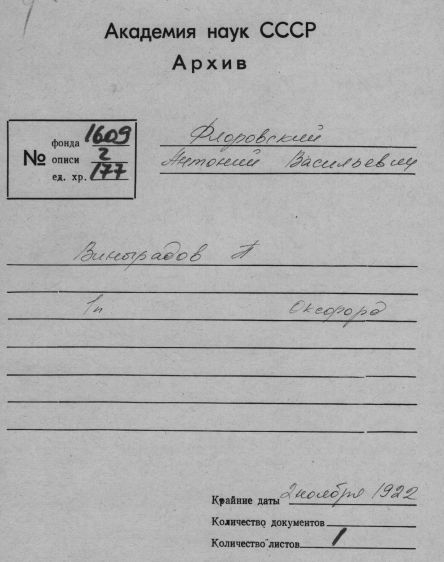 Академия наук СССР
Архив
№
фонда 1609
описи 2
ед. хр. 177
Флоровский
Антоний Васильевич
Виноградов П
1п Оксфорд
Крайние даты 2 ноября 1922
Количество документов
Количество листов 1